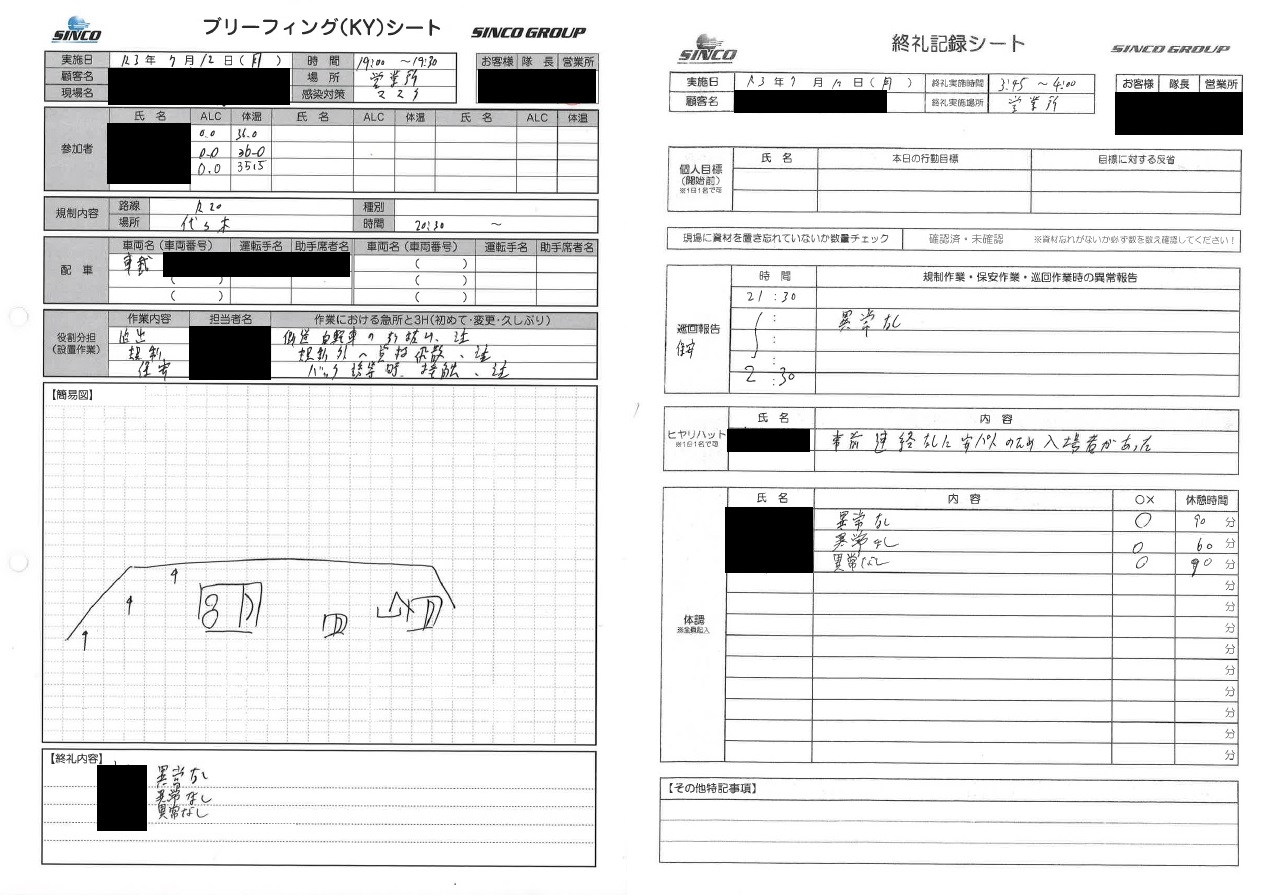 SINCO
ブリーフィング(KY)シート
SINCO GROUP
実施日 R3年 7月12日(月) 時間 19:00 ~19:30
お客様 隊長 営業所
顧客名 場所 営業所
現場名 感染対策 マスク
氏名 ALC 体温 氏名 ALC 体温 氏名 ALC 体温
参加者
0.0 36.0
0.0 36.0
0.0 35.5
規制内容
路線 R20 種別
場所 代々木 時間 20:30 ~
配車
車両名(車両番号) 運転手名 助手席者名 車両名(車両番号) 運転手名 助手席者名
( )
( ) ( )
( ) ( )
役割分担
(設置作業)
作業内容 担当者名 作業における急所と3H(初めて・変更・久しぶり)
歩道自転車の 注
規制 規制外へ 注
保安 バック誘導時、接触、注
【簡易図】
【終礼内容】
異常なし
異常なし
異常なし
SINCO
終礼記録シート
SINCO GROUP
実施日 R3年 7月12日(月) 終礼実施時間 3:45 ~4:00
顧客名 終礼実施場所 営業所
お客様 隊長 営業所
個人目標
(開始前)
※1日1名で可
氏名 本日の行動目標 目標に対する反省
現場に資材を置き忘れていないか数量チェック 確認済・未確認 ※資材忘れがないか必ず数を数え確認してください!
巡回報告
保安
時間 規制作業・保安作業・巡回作業時の異常報告
21:30
: 異常なし
:
:
2:30
ヒヤリハット
※1日1名で可
氏名 内容
事前連絡なしに 入場者があった
体調
※全員記入
氏名 内容 ○× 休憩時間
異常なし ○ 90分
異常なし ○ 60分
異常なし ○ 90分
分
分
分
分
分
分
分
分
分
【その他特記事項】